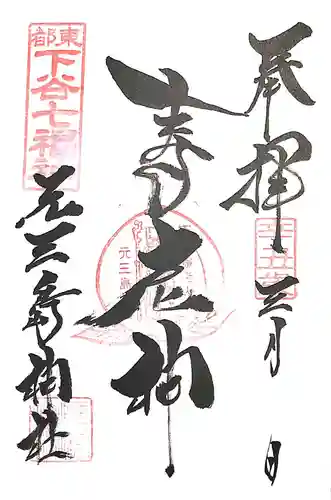 奉拝
辛丑歳
三月 日
寿老神
元三
東都
下谷七福神
元三島神社